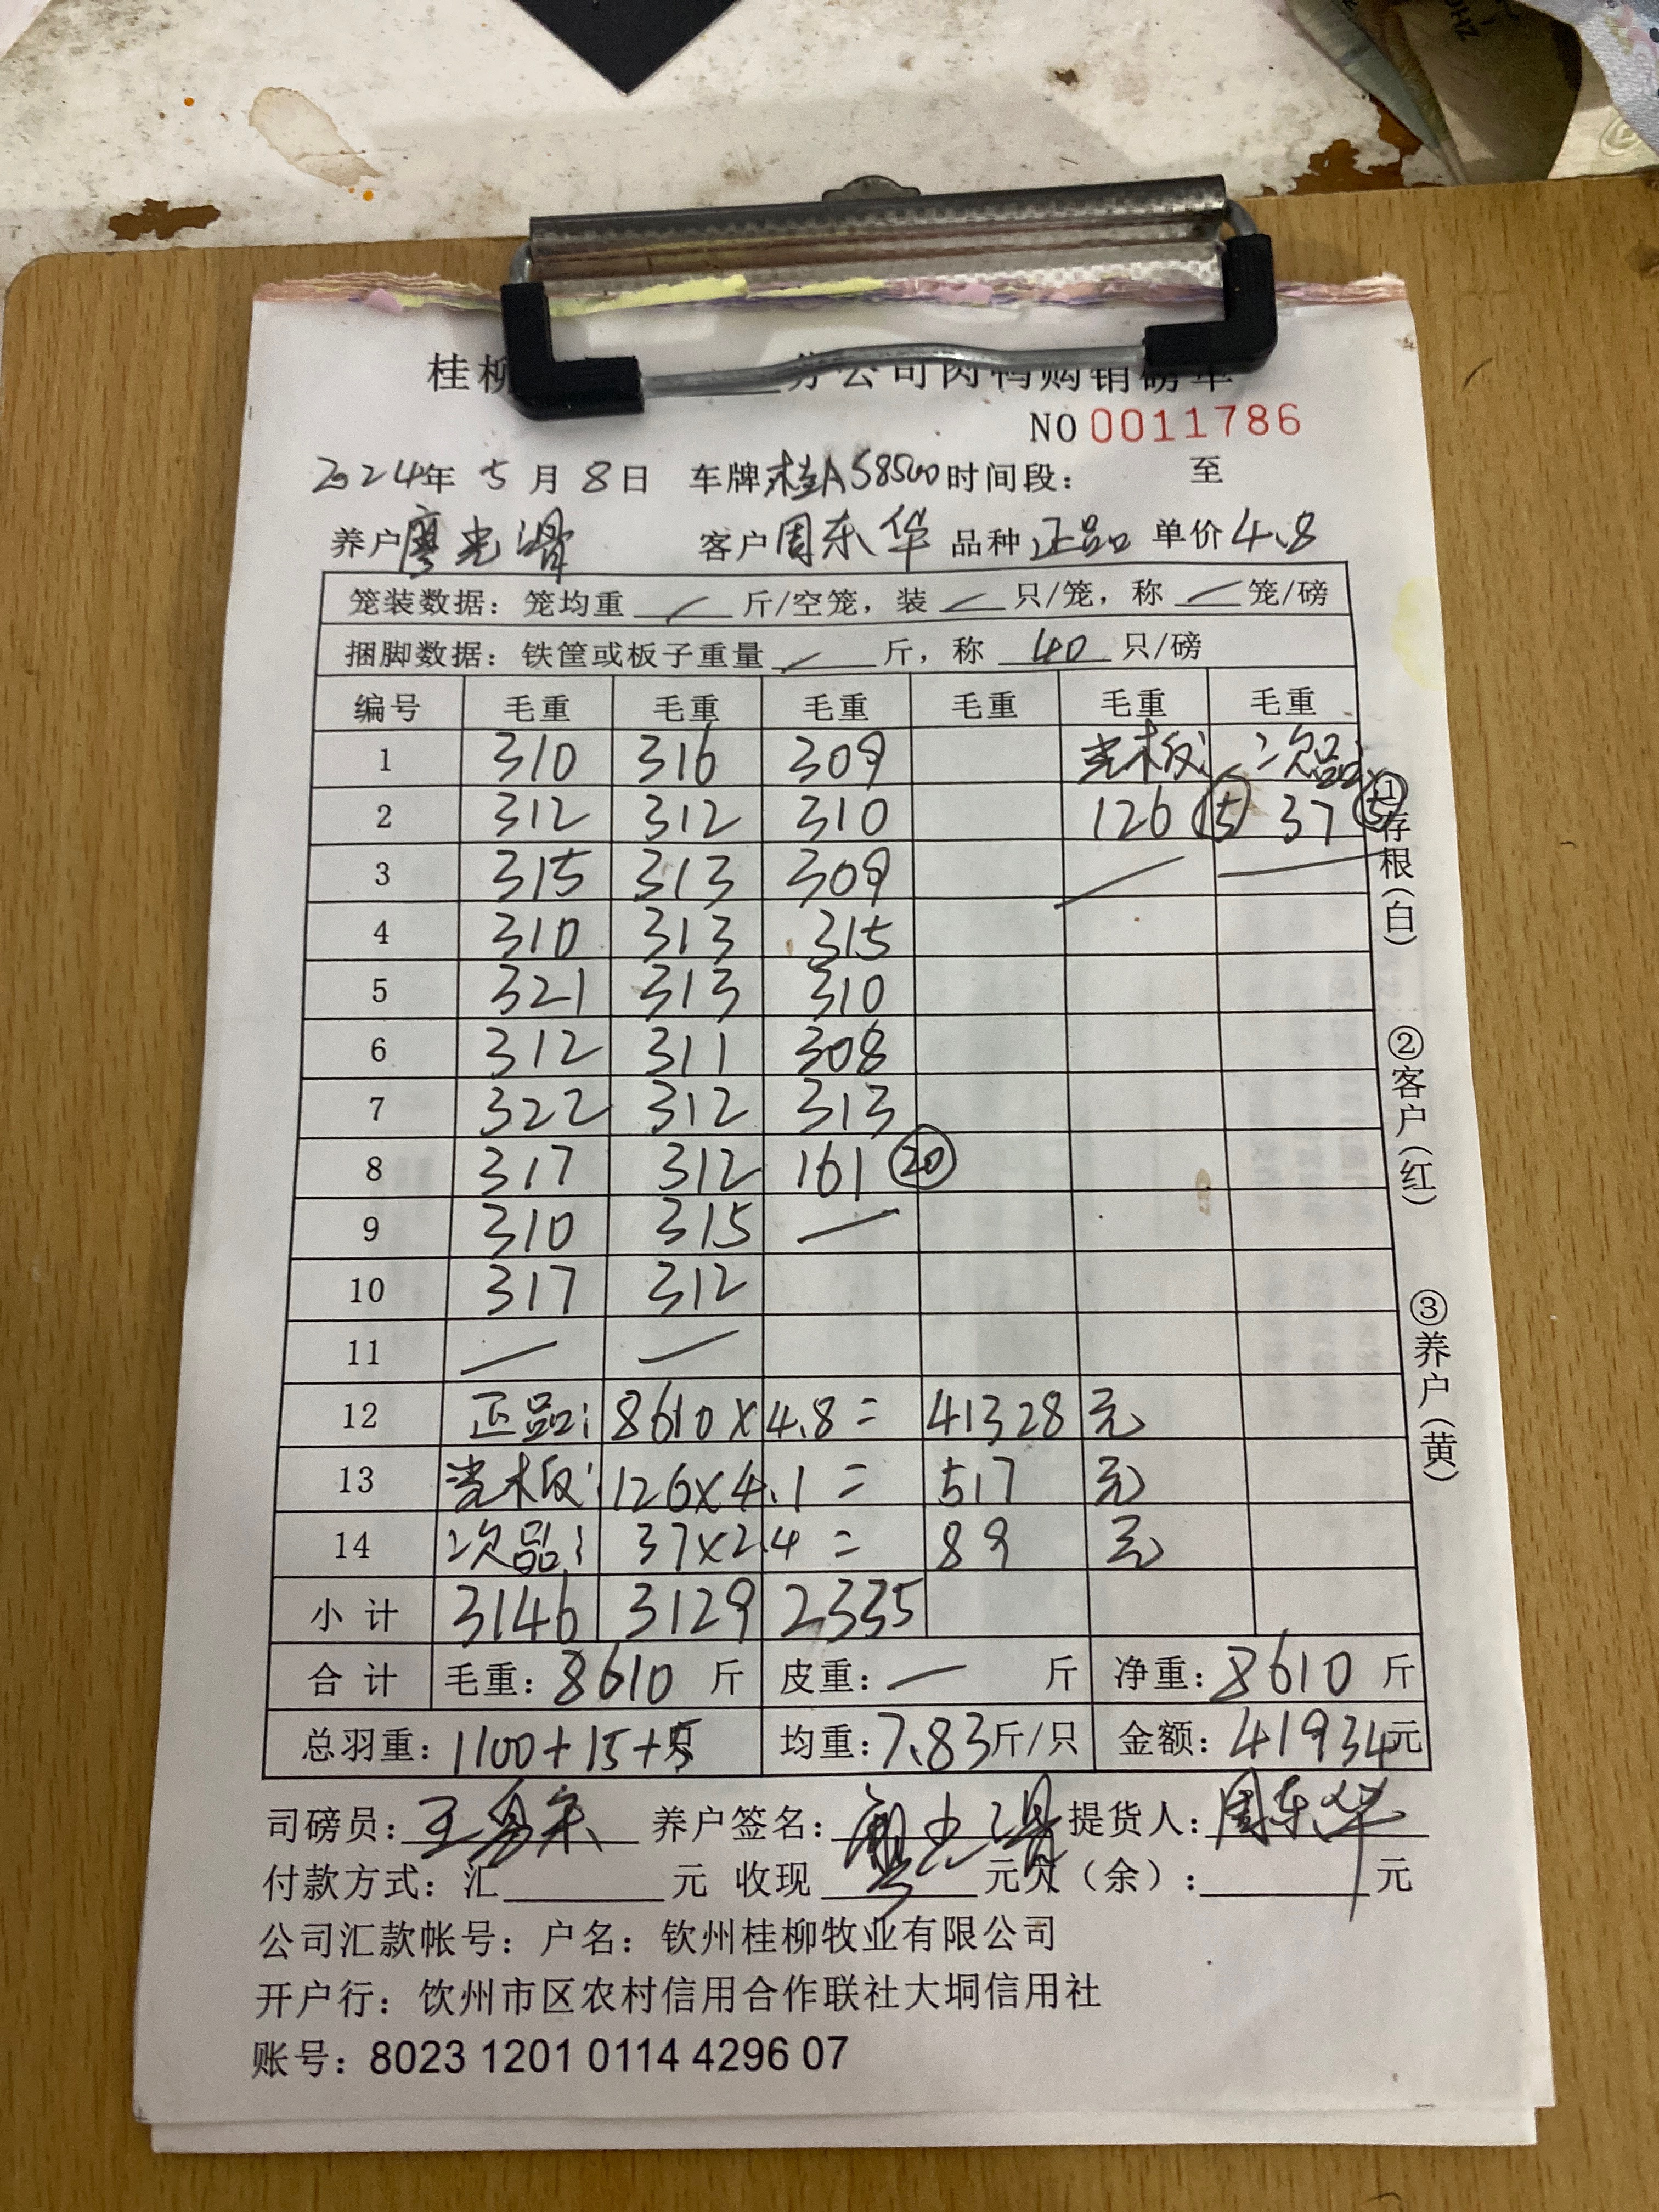 桂柳 分公司肉鸭购销磅单
NO 0011786
2024年 5 月 8 日 车牌桂A58500 时间段： 至
养户 廖光滑 客户 周东华 品种 正品 单价 4.8
笼装数据：笼均重 / 斤/空笼，装 / 只/笼，称 / 笼/磅
捆脚数据：铁筐或板子重量 / 斤，称 40 只/磅
编号 毛重 毛重 毛重 毛重 毛重 毛重
1 310 316 309 木板: 次品:
2 312 312 310 126 15 37 5
3 315 313 309 — —
4 310 313 315
5 321 313 310
6 312 311 308
7 322 312 313
8 317 312 161 20
9 310 315 —
10 317 312
11 — —
12 正品: 8610×4.8= 41328 元
13 木板: 126×4.1= 517 元
14 次品: 37×2.4= 89 元
小 计 3146 3129 2335
合 计 毛重：8610 斤 皮重：— 斤 净重：8610 斤
总羽重：1100+15+5只 均重：7.83斤/只 金额：41934元
司磅员： 养户签名： 提货人：周东华
付款方式：汇 元 收现 元欠（余）： 元
公司汇款帐号：户名：钦州桂柳牧业有限公司
开户行：钦州市区农村信用合作联社大垌信用社
账号：8023 1201 0114 4296 07
①存根(白)
②客户(红)
③养户(黄)